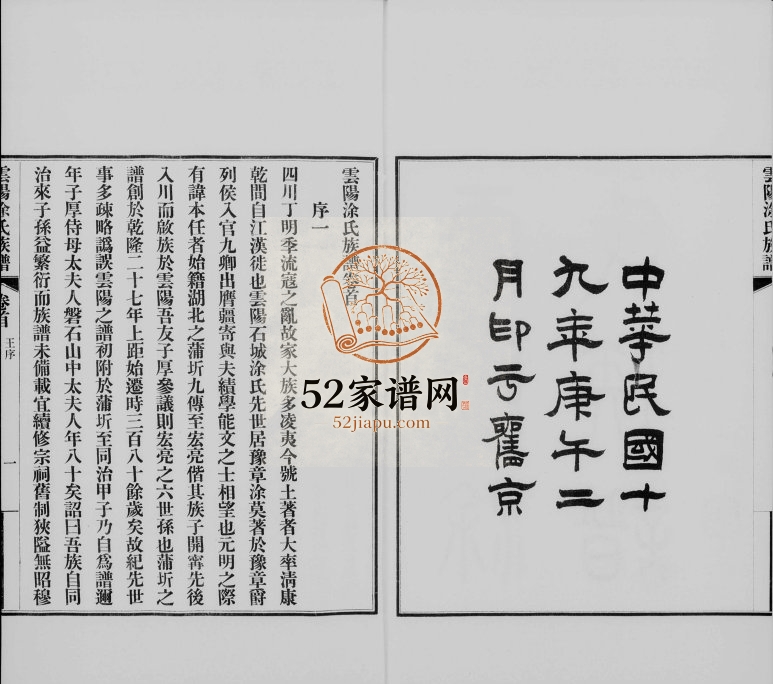 中華民國十
九年庚午二
月印于舊京
雲陽涂氏族譜
雲陽涂氏族譜卷首
序一
四川丁明季流寇之亂故家大族多凌夷今號土著者大率清康
乾間自江漢徙也雲陽石城涂氏先世居豫章涂莫著於豫章爵
列侯入官九卿出膺疆寄與夫績學能文之士相望也元明之際
有諱本任者始籍湖北之蒲圻九傳至宏亮偕其族子開甯先後
入川而啟族於雲陽吾友子厚參議則宏亮之六世孫也蒲圻之
譜創於乾隆二十七年上距始遷時三百八十餘歲矣故紀先世
事多疎略譌誤雲陽之譜初附於蒲圻至同治甲子乃自爲譜邇
年子厚侍母太夫人磐石山中太夫人年八十矣詔曰吾族自同
治來子孫益繁衍而族譜未備載宜續修宗祠舊制狹隘無昭穆
雲陽涂氏族譜
卷首
王序
一
52家谱网
52jiapu.com